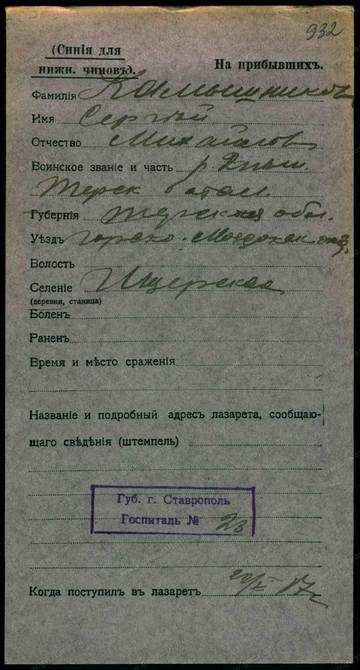 932
(Синія для
нижн. чиновъ).
На прибывшихъ.
Фамилія Камышников
Имя Сергѣй
Отчество Михайлов
Воинское званіе и часть р.
Терск
Губернія Терская обл.
Уѣздъ Моздокск
Волость
Селеніе Ищерская
(деревня, станица)
Боленъ
Раненъ
Время и мѣсто сраженія
Названіе и подробный адресъ лазарета, сообщаю-
щаго свѣдѣнія (штемпель)
Губ. г. Ставрополь
Госпиталь № 23
Когда поступилъ въ лазаретъ 17